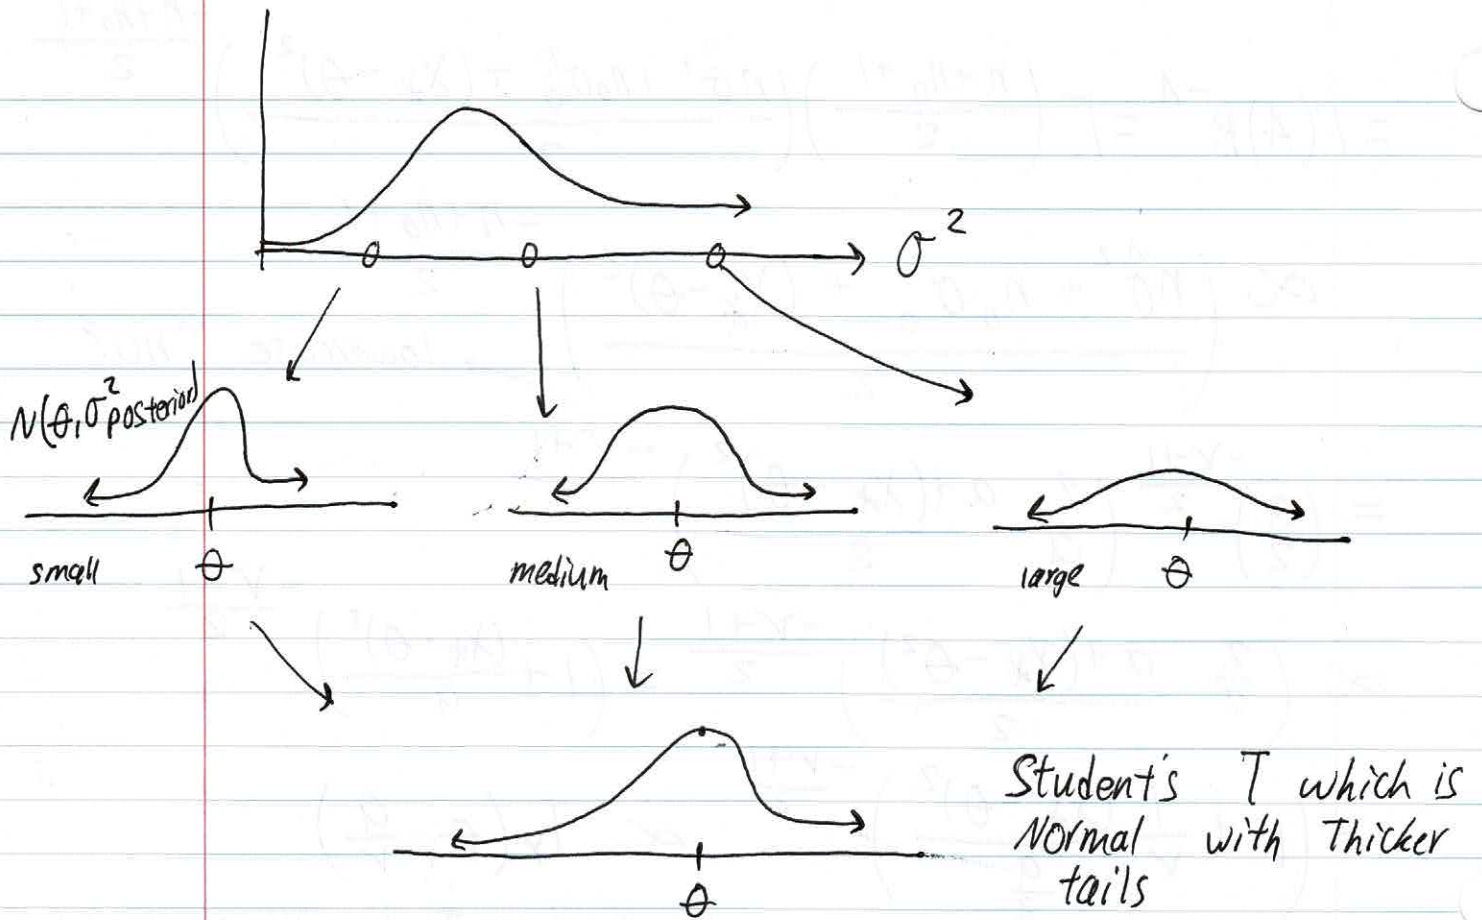 σ²
N(θ, σ² posterior)
small
θ
medium
θ
large
θ
Student's T which is
Normal with Thicker
tails
θ